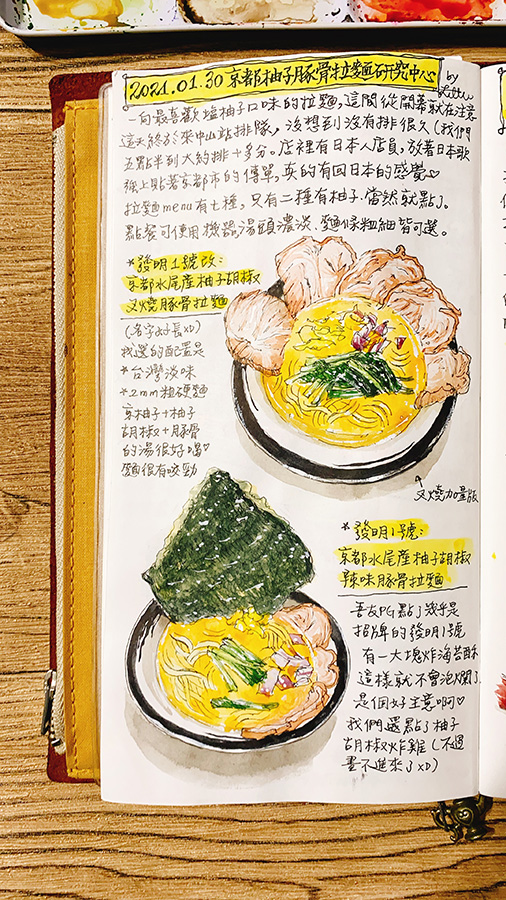 2021.01.30 京都柚子豚骨拉麵研究中心
by
一向最喜歡鹽柚子口味的拉麵,這間從開幕就在注意
這天終於來中山站排隊,沒想到沒有排很久(我們
五點半到大約排十多分。店裡有日本人店員,放著日本歌
牆上貼著京都市的傳單,真的有回日本的感覺♡
拉麵menu有七種,只有二種有柚子,當然就點了。
點餐可使用機器,湯頭濃淡、麵條粗細皆可選。
*發明1號改:
京都水尾產柚子胡椒
叉燒豚骨拉麵
(名字好長XD)
我選的配置是
*台灣淡味
*2mm粗硬麵
京柚子+柚子
胡椒+豚骨
的湯很好喝♡
麵很有咬勁
叉燒加量版
*發明1號:
京都水尾產柚子胡椒
辣味豚骨拉麵
吾友PG點了幾乎是
招牌的發明1號
有一大塊炸海苔酥
這樣就不會泡爛了
是個好主意啊♡
我們還點了柚子
胡椒炸雞(不過
畫不進來了XD)